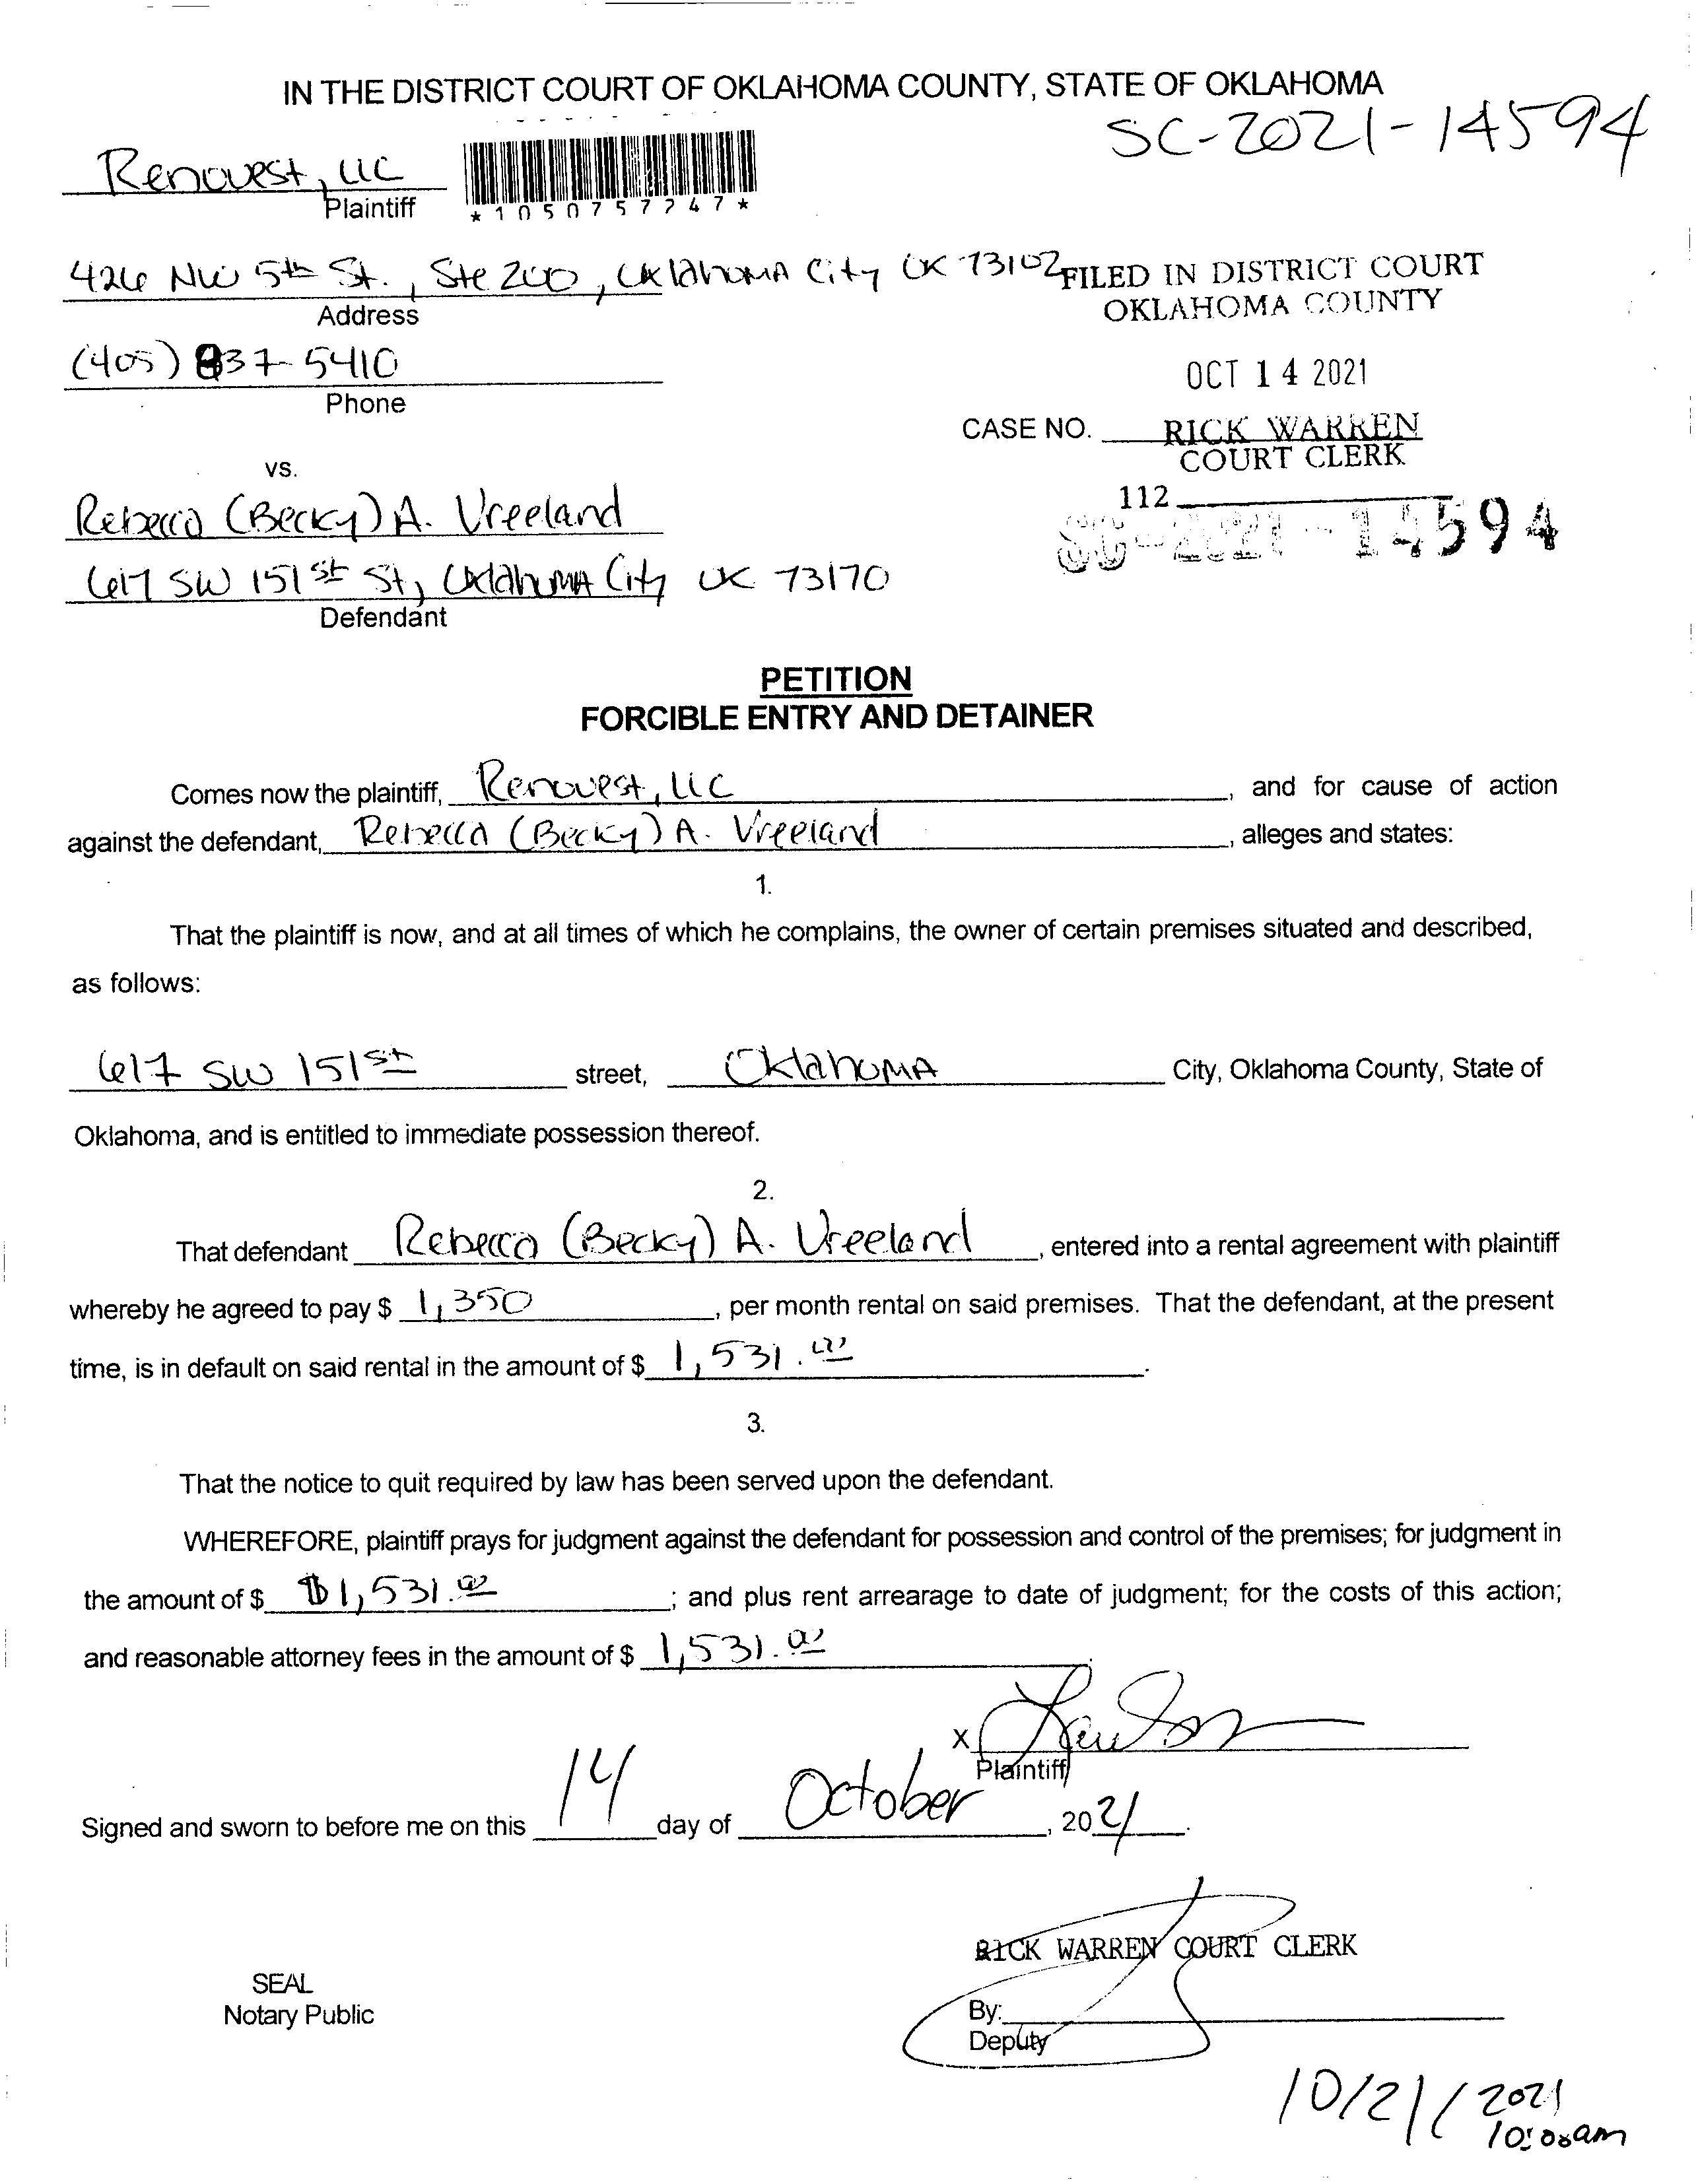 IN THE DISTRICT COURT OF OKLAHOMA COUNTY, STATE OF OKLAHOMA
SC-2021-14594
Renovest, LLC
Plaintiff
*1050757747*
426 NW 5th St., Ste 200, Oklahoma City OK 73102
Address
FILED IN DISTRICT COURT
OKLAHOMA COUNTY
(405) 837-5410
Phone
OCT 14 2021
CASE NO.
RICK WARREN
COURT CLERK
vs.
112
Rebecca (Becky) A. Vreeland
SC-2021-14594
617 SW 151st St, Oklahoma City OK 73170
Defendant
PETITION
FORCIBLE ENTRY AND DETAINER
Comes now the plaintiff, Renovest, LLC, and for cause of action
against the defendant, Rebecca (Becky) A. Vreeland, alleges and states:
1.
That the plaintiff is now, and at all times of which he complains, the owner of certain premises situated and described,
as follows:
617 SW 151st street, Oklahoma City, Oklahoma County, State of
Oklahoma, and is entitled to immediate possession thereof.
2.
That defendant Rebecca (Becky) A. Vreeland, entered into a rental agreement with plaintiff
whereby he agreed to pay $ 1,350, per month rental on said premises. That the defendant, at the present
time, is in default on said rental in the amount of $ 1,531.00.
3.
That the notice to quit required by law has been served upon the defendant.
WHEREFORE, plaintiff prays for judgment against the defendant for possession and control of the premises; for judgment in
the amount of $ $1,531.00; and plus rent arrearage to date of judgment; for the costs of this action;
and reasonable attorney fees in the amount of $ 1,531.00.
X
Plaintiff
Signed and sworn to before me on this 14 day of October, 2021.
RICK WARREN COURT CLERK
SEAL
Notary Public
By:
Deputy
10/21/2021
10:00am